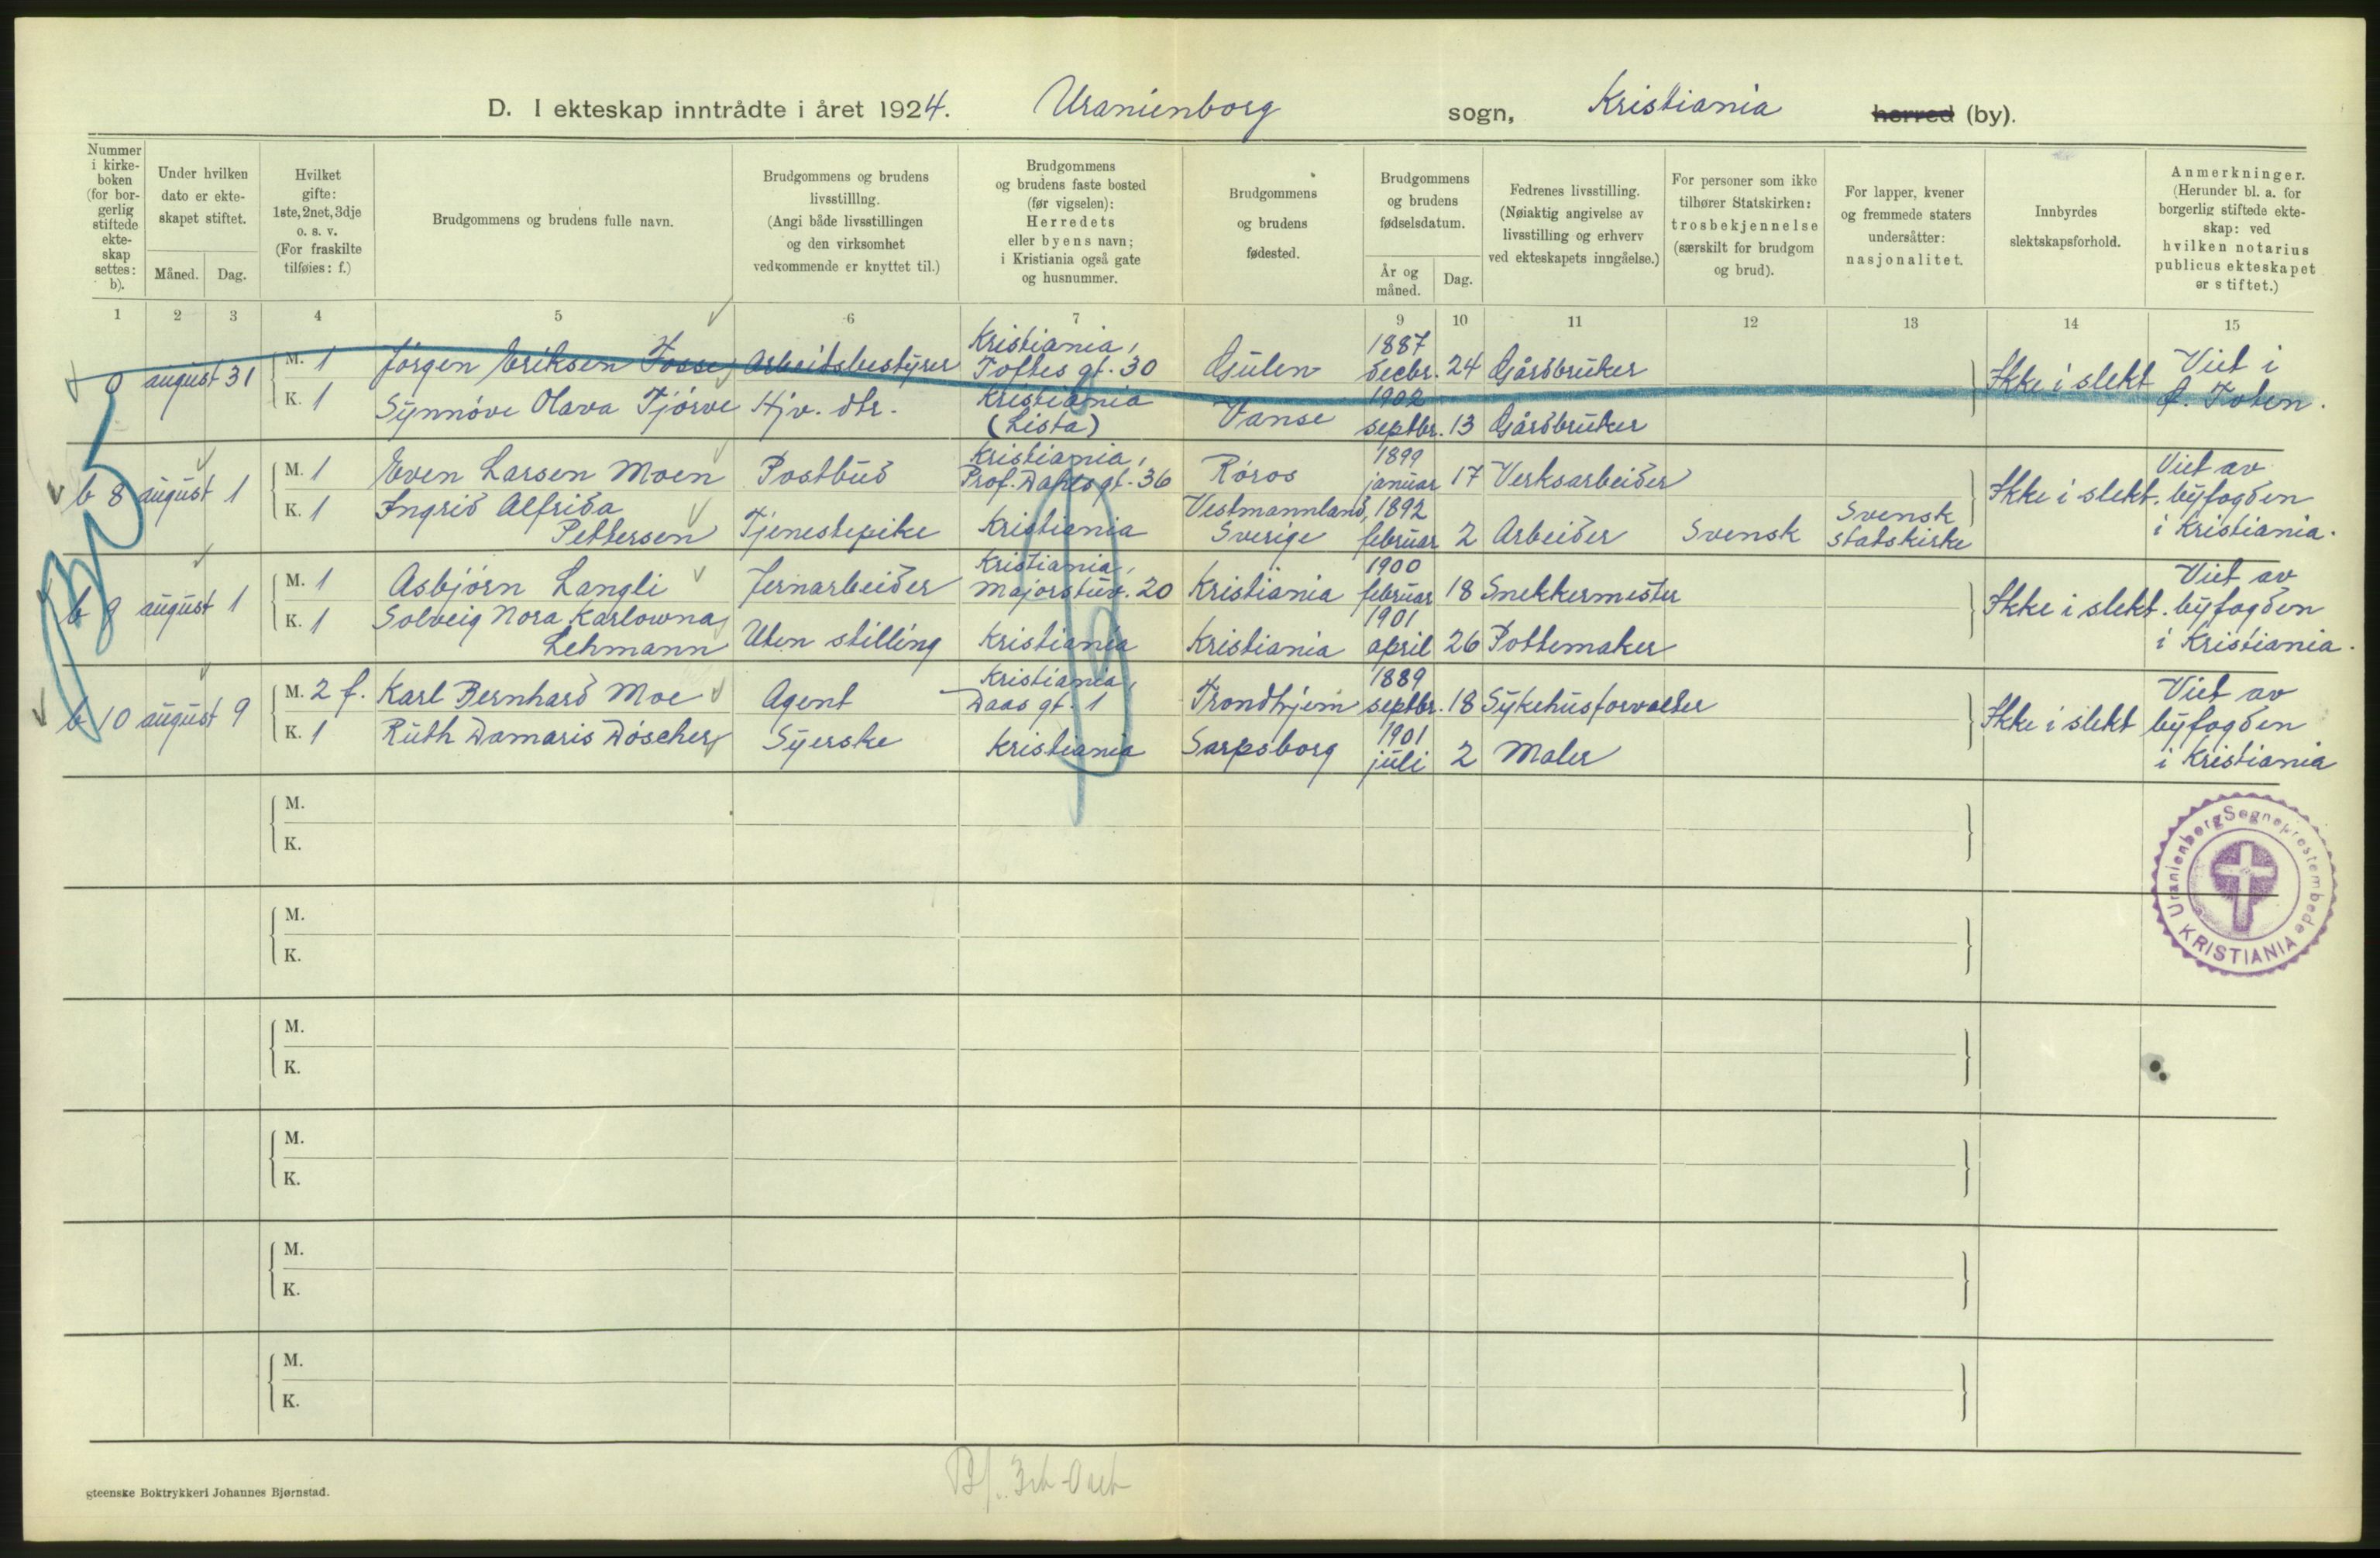 D. I ekteskap inntrådte i året 1924. Uranienborg sogn, Kristiania herred (by).
Nummer i kirkeboken (for borgerlig stiftede ekteskap settes: b).
Under hvilken dato er ekteskapet stiftet.
Måned. Dag.
Hvilket gifte: 1ste, 2net, 3dje o. s. v. (For fraskilte tilføies: f.)
Brudgommens og brudens fulle navn.
Brudgommens og brudens livsstilllng. (Angi både livsstillingen og den virksomhet vedkommende er knyttet til.)
Brudgommens og brudens faste bosted (før vigselen): Herredets eller byens navn; i Kristiania også gate og husnummer.
Brudgommens og brudens fødested.
Brudgommens og brudens fødselsdatum.
År og måned. Dag.
Fedrenes livsstilling. (Nøiaktig angivelse av livsstilling og erhverv ved ekteskapets inngåelse.)
For personer som ikke tilhører Statskirken: trosbekjennelse (særskilt for brudgom og brud).
For lapper, kvener og fremmede staters undersåtter: nasjonalitet.
Innbyrdes slektskapsforhold.
Anmerkninger. (Herunder bl. a. for borgerlig stiftede ekteskap: ved hvilken notarius publicus ekteskapet er stiftet.)
1 2 3 4 5 6 7 8 9 10 11 12 13 14 15
0 august 31 M. 1 Jörgen Eriksen Fosse Arbeidsbestyrer Kristiania, Toftes gt. 30 Gulen 1887 decbr. 24 Gårdbruker Ikke i slekt Viet i Ø. Toten.
K. 1 Synnöve Olava Tjörve Hjv. dtr. Kristiania (Lista) Vanse 1902 septbr. 13 Gårdbruker
b 8 august 1 M. 1 Even Larsen Moen Postbud Kristiania, Prof. Dahls gt. 36 Röros 1899 januar 17 Verksarbeider Ikke i slekt. Viet av byfogden i Kristiania.
K. 1 Ingrid Alfrida Pettersen Tjenestepike Kristiania Vestmannland, Sverige 1892 februar 2 Arbeider Svensk Svensk statskirke
b 9 august 1 M. 1 Asbjörn Langli Jernarbeider Kristiania, Majorstuv. 20 Kristiania 1900 februar 18 Snekkermester Ikke i slekt. Viet av byfogden i Kristiania.
K. 1 Solveig Nora Karlowna Lehmann Uten stilling Kristiania Kristiania 1901 april 26 Pottemaker
b 10 august 9 M. 2 f. Karl Bernhard Moe Agent Kristiania, Daas gt. 1 Trondhjem 1889 septbr. 18 Sykehusforvalter Ikke i slekt Viet av byfogden i Kristiania
K. 1 Ruth Damaris Döscher Syerske Kristiania Sarpsborg 1901 juli 2 Maler
M.
K.
M.
K.
M.
K.
M.
K.
M.
K.
M.
K.
Uranienborg Sogneprestembede
KRISTIANIA
gteenske Boktrykkeri Johannes Bjørnstad.